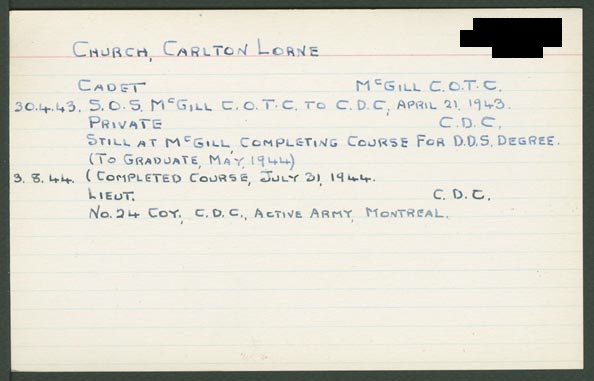 CHURCH, CARLTON LORNE
CADET McGILL C.O.T.C.
30.4.43. S.O.S. McGILL C.O.T.C. TO C.D.C, APRIL 21, 1943.
PRIVATE C.D.C.
STILL AT McGILL, COMPLETING COURSE FOR D.D.S, DEGREE.
(TO GRADUATE, MAY, 1944)
3.8.44. (COMPLETED COURSE, JULY 31, 1944.
LIEUT. C.D.C.
No. 24 COY., C.D.C., ACTIVE ARMY, MONTREAL.